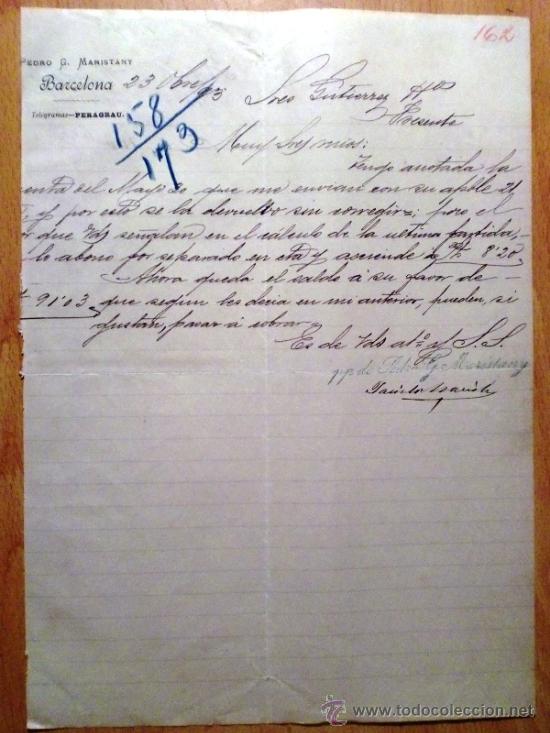 162
PEDRO G. MARISTANY
Barcelona 23 Obre/93
Telegramas—PERAGRAU.
158
173
Sres Gutierrez Hos
Presente
Muy Sres mios:
Tengo anotada la
cuenta del Mayo 20 que me envian con su apble 21
y por esto se la devuelvo sin corregir; pero el
que Vds señalan en el cálculo de la ultima partida,
lo abono por separado en cta y asciende á Pt. 8'20.
Ahora queda el saldo á su favor de
91'03, que segun les decia en mi anterior, pueden, si
gustan, pasar á cobrar.
Es de Vds at.º y S.S.
pp de Pedro G. Maristany
todocoleccion
www.todocoleccion.net